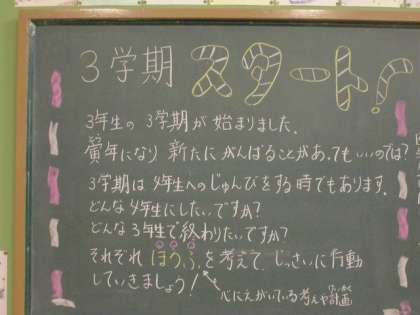 3学期 スタート!
3年生の 3学期が 始まりました。
寅年になり 新たに がんばることがあってもいいのでは?
3学期は 4年生へのじゅんびをする時でもあります。
どんな 4年生にしたいですか?
どんな 3年生で終わりたいですか?
それぞれ ほうふを 考えて じっさいに 行動
していきましょう!
心にえがいている考えや計画
けいかく